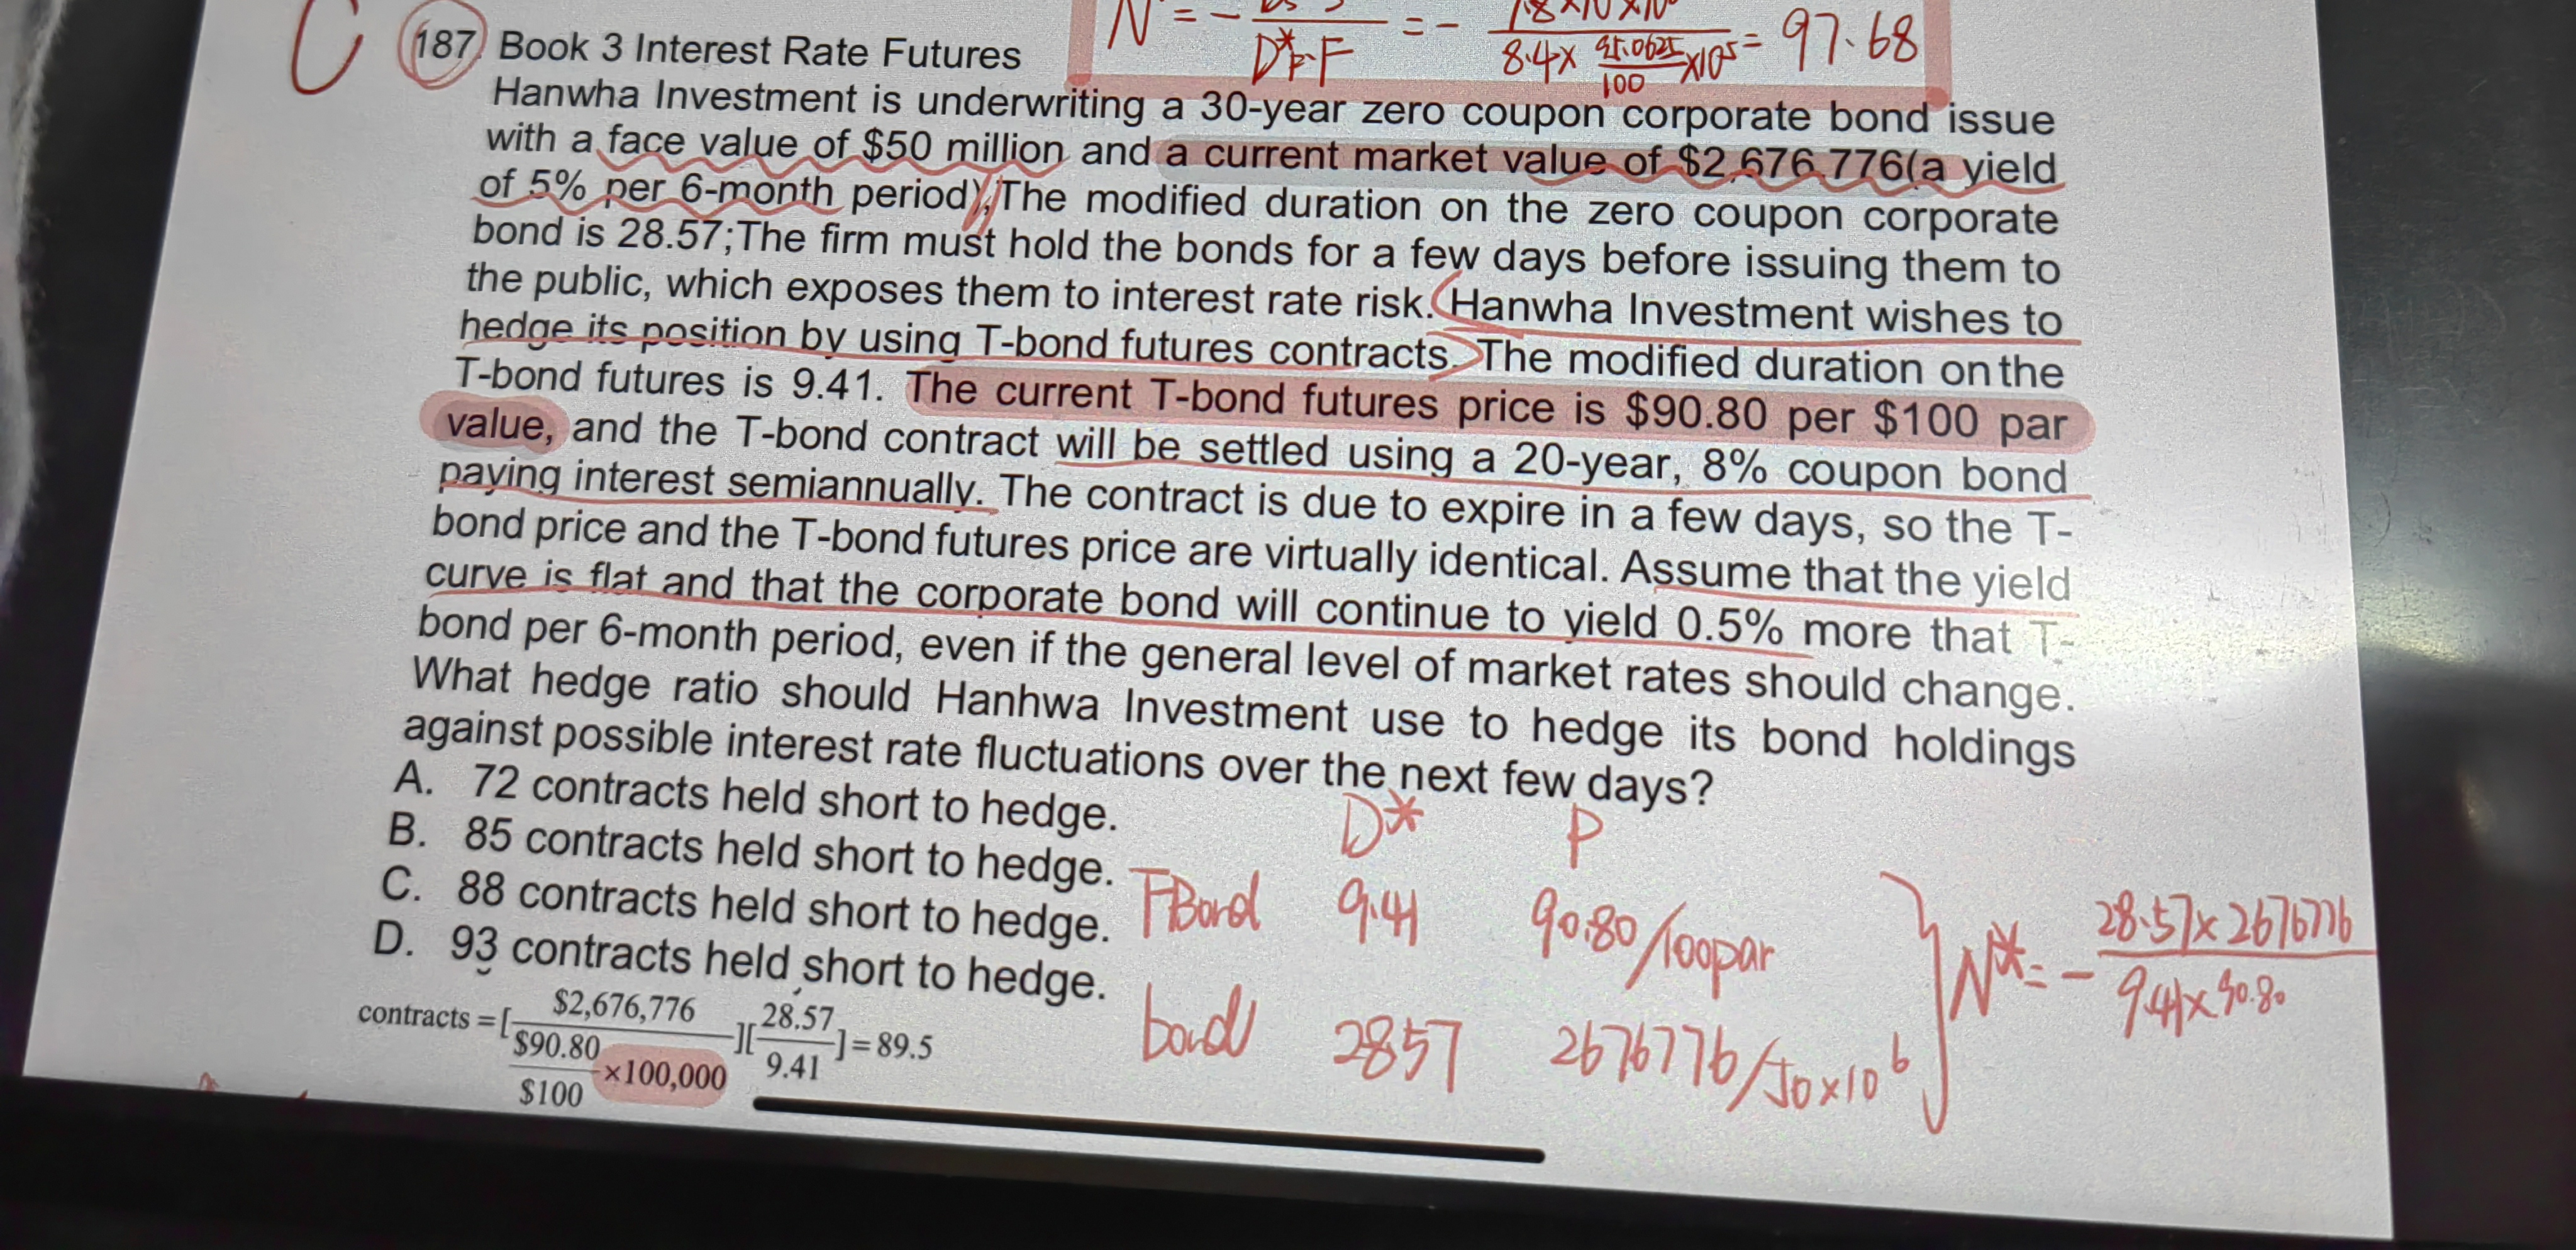 C
187. Book 3 Interest Rate Futures
N = - = - 
D*F·F 8.4× 95.0625/100 ×10⁵ = 97.68
Hanwha Investment is underwriting a 30-year zero coupon corporate bond issue
with a face value of $50 million and a current market value of $2,676,776(a yield
of 5% per 6-month period),The modified duration on the zero coupon corporate
bond is 28.57;The firm must hold the bonds for a few days before issuing them to
the public, which exposes them to interest rate risk. Hanwha Investment wishes to
hedge its position by using T-bond futures contracts. The modified duration on the
T-bond futures is 9.41. The current T-bond futures price is $90.80 per $100 par
value, and the T-bond contract will be settled using a 20-year, 8% coupon bond
paying interest semiannually. The contract is due to expire in a few days, so the T-
bond price and the T-bond futures price are virtually identical. Assume that the yield
curve is flat and that the corporate bond will continue to yield 0.5% more that T-
bond per 6-month period, even if the general level of market rates should change.
What hedge ratio should Hanhwa Investment use to hedge its bond holdings
against possible interest rate fluctuations over the next few days?
A. 72 contracts held short to hedge.
B. 85 contracts held short to hedge.
C. 88 contracts held short to hedge.
D. 93 contracts held short to hedge.
D* P
TBond 9.41 90.80/100par
bond 2857 2676776/50×10⁶
N* = - 28.57×2676776
9.41×90.80
contracts = [ $2,676,776 ][ 28.57 ] = 89.5
$90.80 9.41
$100 ×100,000